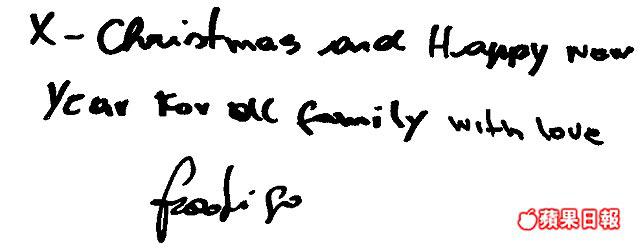 X-Christmas and Happy New
Year For all family with love
蘋果日報